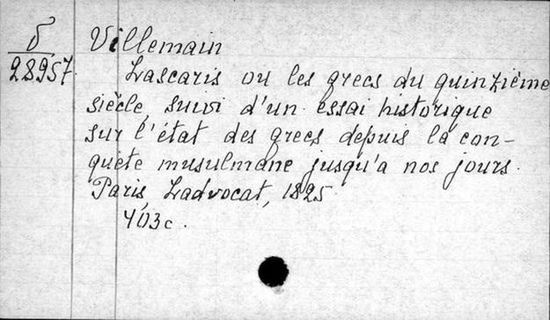 б
28957
Villemain
Lascaris ou les grecs du quinzième
siècle, suivi d'un essai historique
sur l'état des grecs depuis la con-
quête musulmane jusqu'a nos jours.
Paris, Ladvocat, 1825
403c.